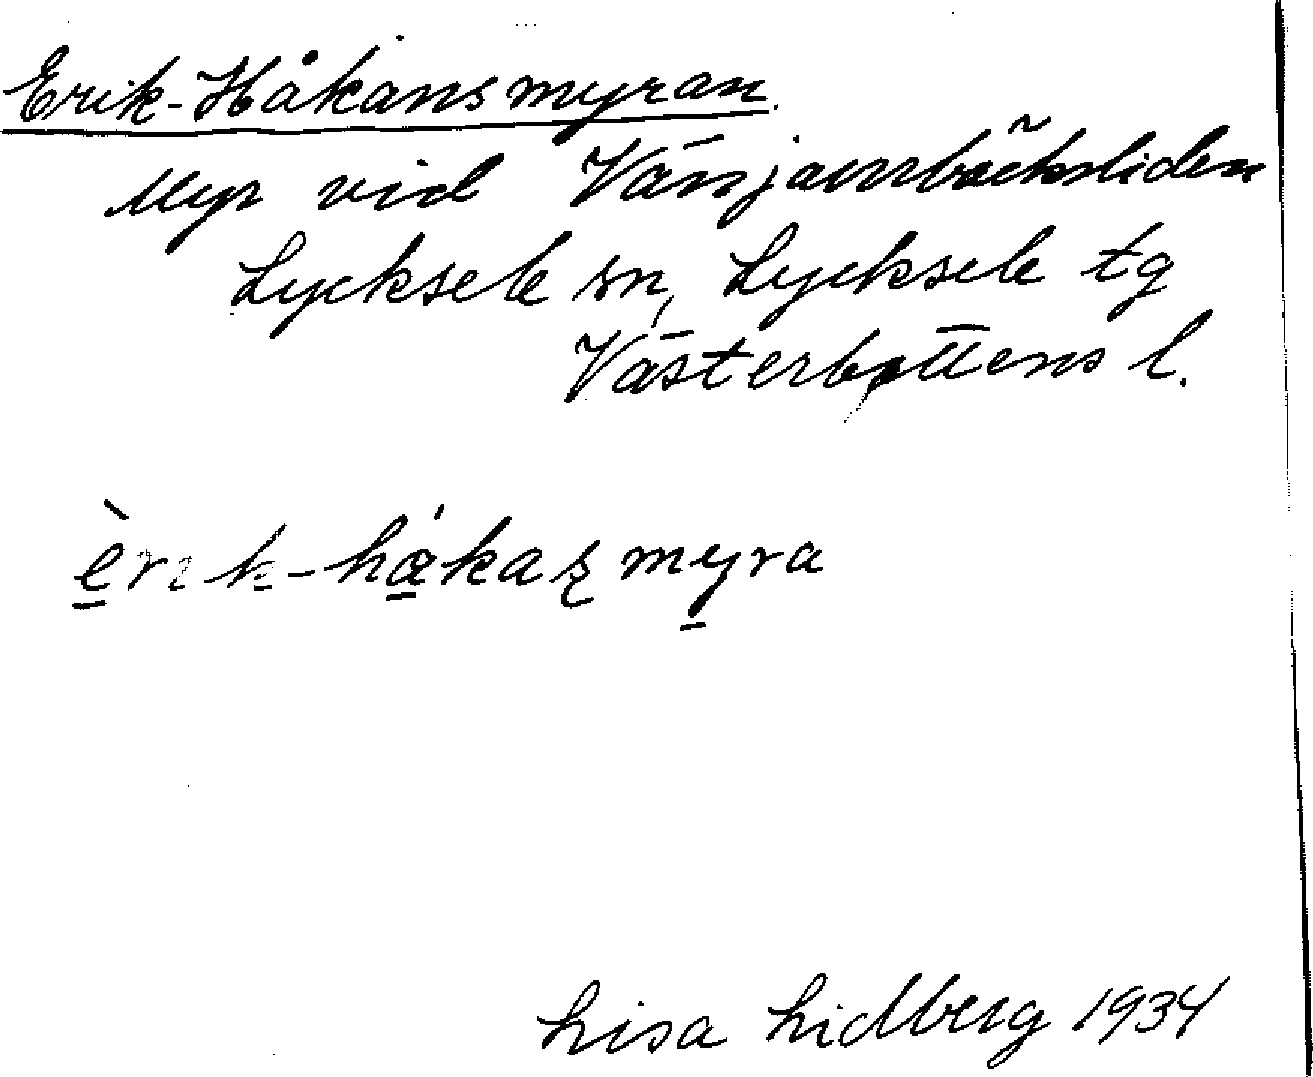 Erik-Håkansmyran.
Myr vid Vänjaurbäcksliden
Lycksele sn, Lycksele tg
Västerbottens l.
èrik-håkaʂmyra
Lisa Lidberg 1934